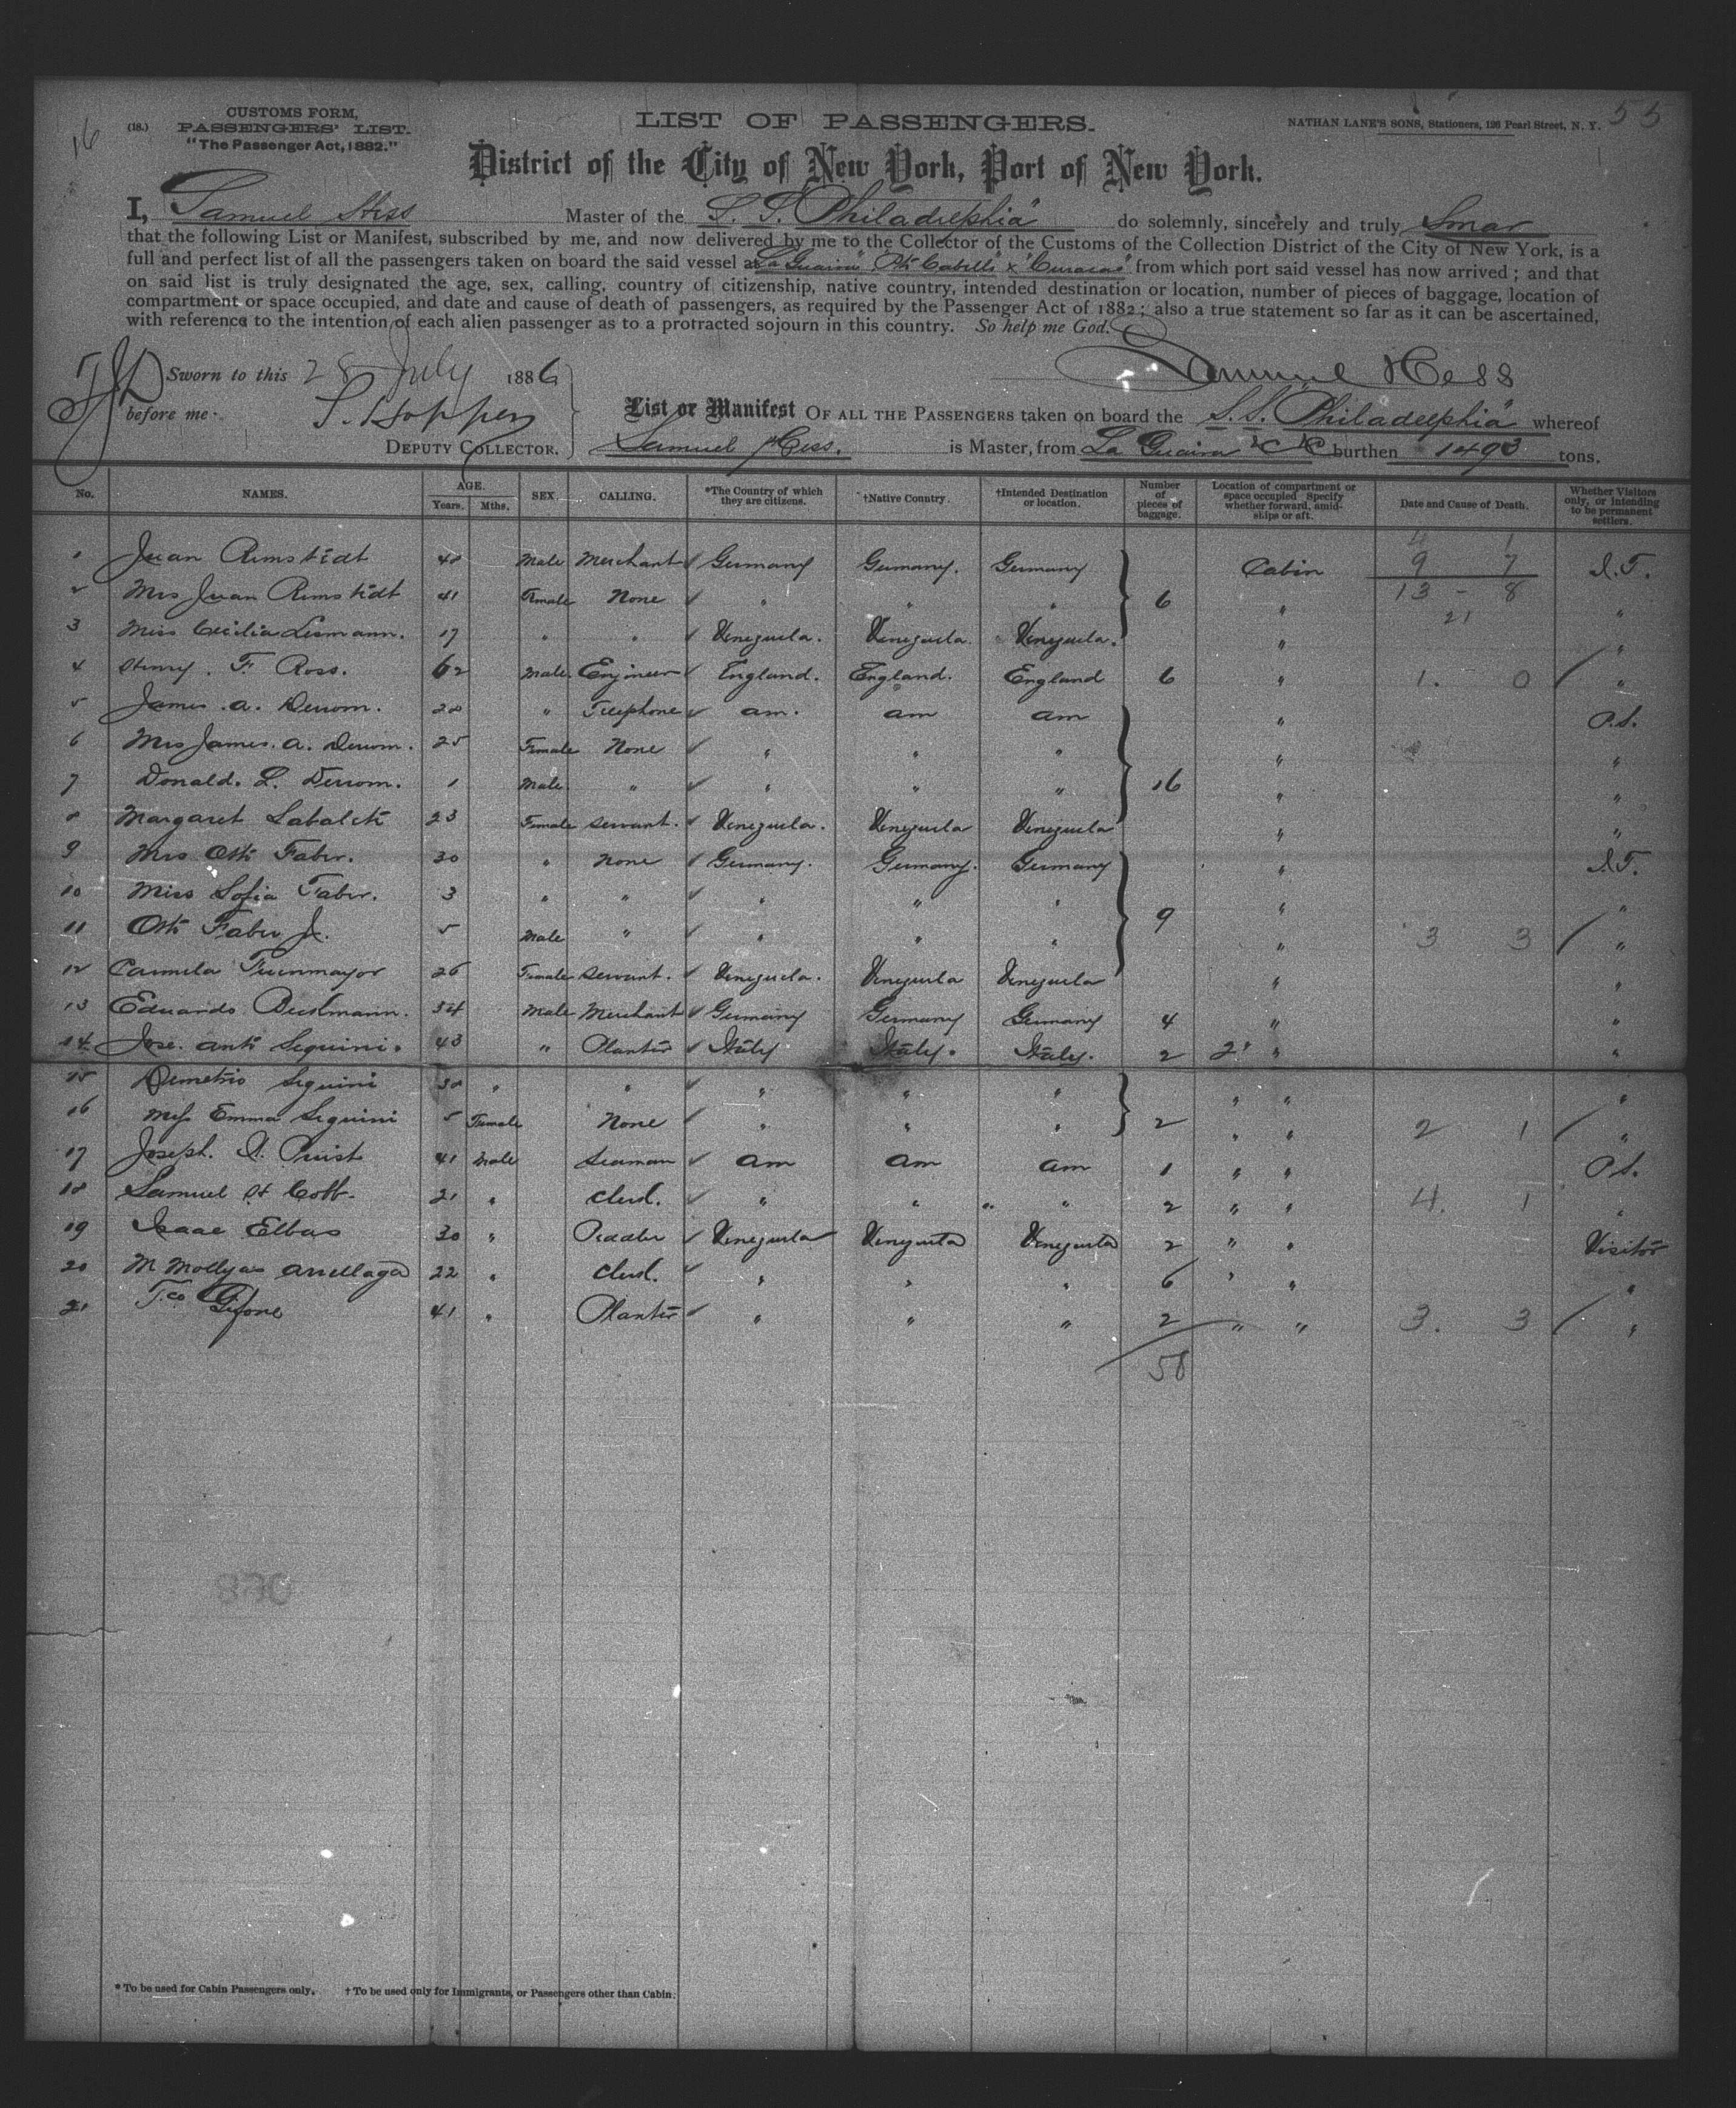 16
55
(18.) CUSTOMS FORM,
PASSENGERS' LIST.
"The Passenger Act, 1882."
LIST OF PASSENGERS.
NATHAN LANE'S SONS, Stationers, 126 Pearl Street, N. Y.
District of the City of New York, Port of New York.
I, Samuel Hess Master of the S. S. "Philadelphia" do solemnly, sincerely and truly Swear
that the following List or Manifest, subscribed by me, and now delivered by me to the Collector of the Customs of the Collection District of the City of New York, is a
full and perfect list of all the passengers taken on board the said vessel at "La Guaira" "Pto Cabello" & "Curacao" from which port said vessel has now arrived; and that
on said list is truly designated the age, sex, calling, country of citizenship, native country, intended destination or location, number of pieces of baggage, location of
compartment or space occupied, and date and cause of death of passengers, as required by the Passenger Act of 1882; also a true statement so far as it can be ascertained,
with reference to the intention of each alien passenger as to a protracted sojourn in this country. So help me God.
Sworn to this 28 July 1886
Samuel Hess
before me
S. Hoppen
DEPUTY COLLECTOR.
List or Manifest OF ALL THE PASSENGERS taken on board the S. S. "Philadelphia" whereof
Samuel Hess. is Master, from La Guaira & C burthen 1493 tons.
No. NAMES. AGE. Years. Mths. SEX. CALLING. *The Country of which they are citizens. †Native Country. †Intended Destination or location. Number of pieces of baggage. Location of compartment or space occupied Specify whether forward, amidships or aft. Date and Cause of Death. Whether Visitors only, or intending to be permanent settlers.
4 1
1 Juan Rimstedt 48 Male Merchant Germany Germany. Germany Cabin 9 7 I. T.
2 Mrs Juan Rimstedt 41 Female None " " " 6 " 13 - 8 "
21
3 Miss Cecilia Lesmann. 17 " " Venezuela. Venezuela. Venezuela. " "
4 Henry. F. Ross. 62 Male. Engineer England. England. England 6 " 1. 0 "
5 James. A. Derrom. 28 " Telephone am. am am " P.S.
6 Mrs James. A. Derrom. 25 Female None " " " " "
7 Donald. L. Derrom. 1 Male " " " " 16 " "
8 Margaret 23 Female servant. Venezuela. Venezuela Venezuela " "
9 Mrs Otto Faber. 30 " None Germany. Germany. Germany " I.T.
10 Miss Sofia Faber. 3 " " " " " " "
11 Otto Faber Jr. 5 Male " " " " 9 " 3 3 "
12 Carmela 26 Female servant. Venezuela. Venezuela Venezuela " "
13 Eduardo 54 Male Merchant Germany Germany Germany 4 " "
14 Jose. Anto Seguini. 43 " Planter Italy Italy. Italy. 2 2" " "
15 Demetrio Seguini 38 " " " " " " " "
16 Miss Emma Seguini 5 Female None " " " 2 " " 2 1 "
17 Joseph. Priest 41 Male Seaman am am am 1 " " P.S.
18 Samuel H Cobb. 21 " Clerk. " " " 2 " " 4. 1 "
19 Isaac Elbas 30 " Peddler Venezuela Venezuela Venezuela 2 " " Visitor
20 M Mollyas Arrellaga 22 " Clerk. " " " 6 " " "
21 Fco 41 " Planter " " " 2 " " 3. 3 "
58
* To be used for Cabin Passengers only. † To be used only for Immigrants, or Passengers other than Cabin.